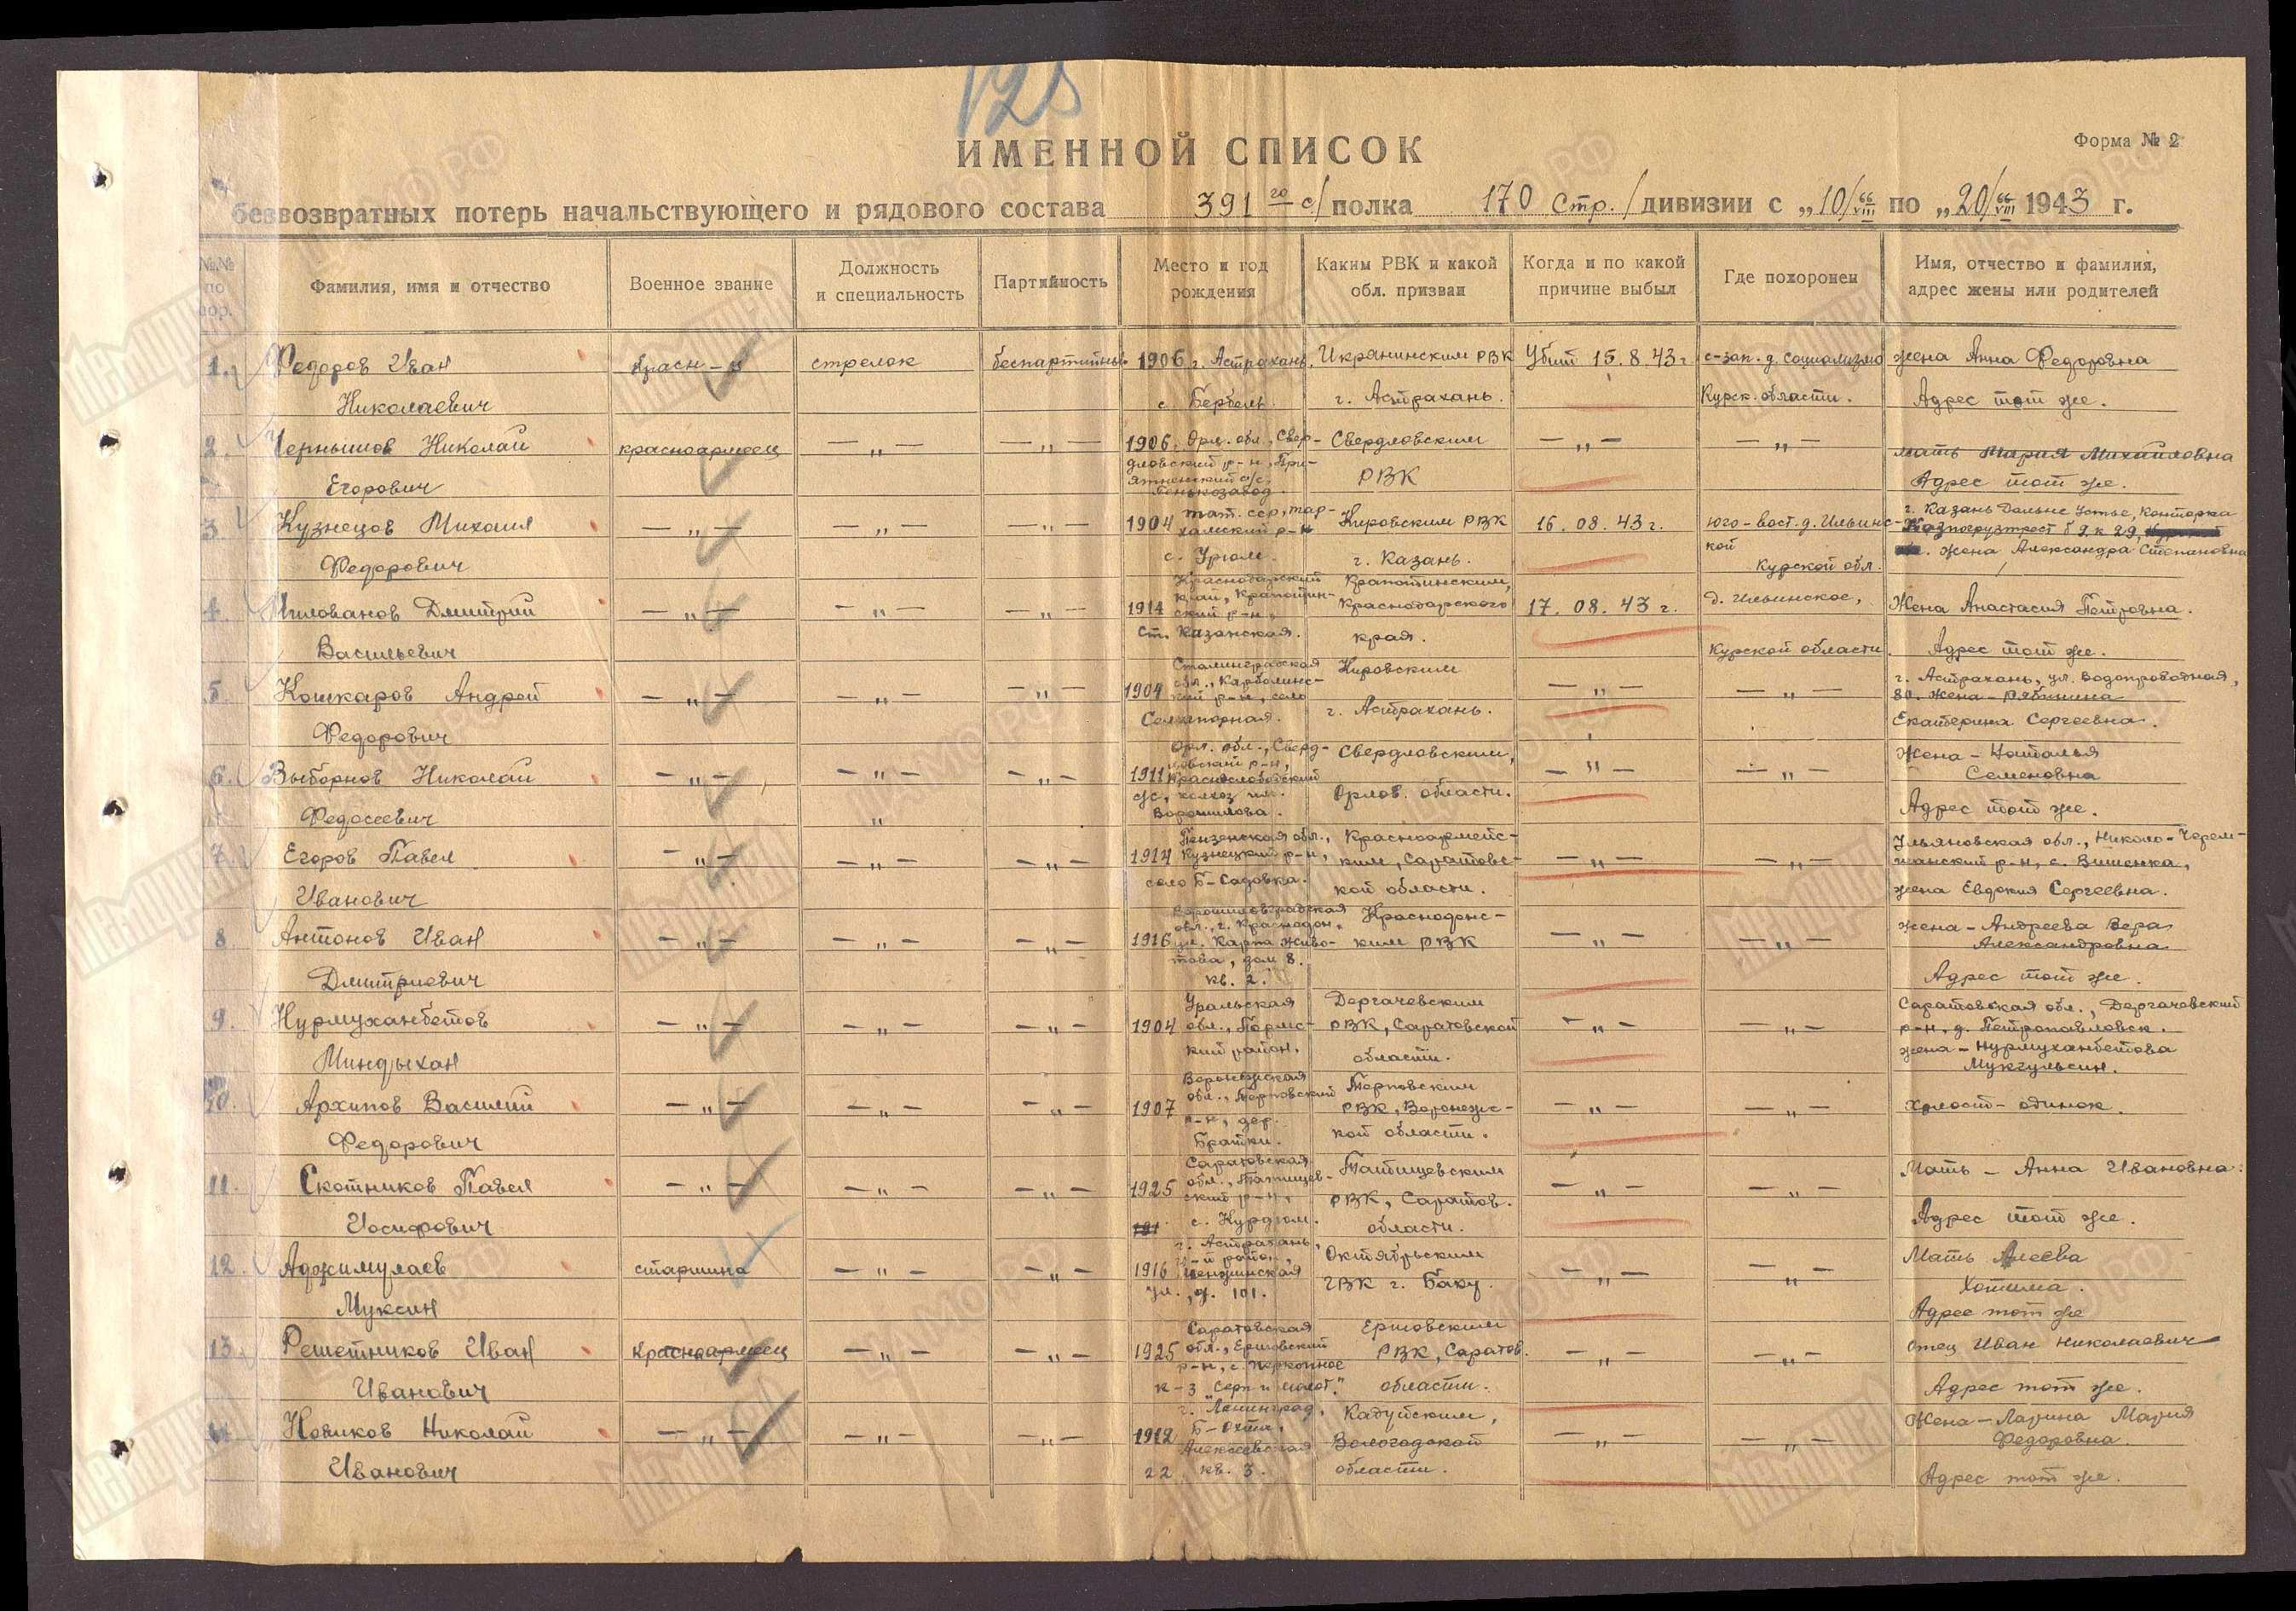 125
ИМЕННОЙ СПИСОК
Форма № 2
безвозвратных потерь начальствующего и рядового состава 391 го с/полка 170 Стр./дивизии с „10/VIII" по „20/VIII" 1943 г.
№№ по пор.
Фамилия, имя и отчество
Военное звание
Должность и специальность
Партийность
Место и год рождения
Каким РВК и какой обл. призван
Когда и по какой причине выбыл
Где похоронен
Имя, отчество и фамилия, адрес жены или родителей
1. Федоров Иван Николаевич
красн-ц
стрелок
беспартийный
1906 г. Астрахань, с.
Икрянинским РВК г. Астрахань.
Убит 15.8.43 г.
с-зап. д. Социализма Курск. области.
Жена Анна Федоровна Адрес тот же.
2. Чернышов Николай Егорович
красноармеец
— „ —
— „ —
1906. Орл. обл., Свердловский р-н, с/с, Пенькозавод.
Свердловским РВК
— „ —
— „ —
Мать Мария Михайловна Адрес тот же.
3. Кузнецов Михаил Федорович
— „ —
— „ —
— „ —
1904 Тат. сср, р-н с. Урюм.
Кировским РВК г. Казань.
16.08.43 г.
юго-вост. д. Ильинской Курской обл.
г. Казань Дальне Устье, Конторка б 9 к 29, Жена Александра Степановна
4. Милованов Дмитрий Васильевич
— „ —
— „ —
— „ —
1914 Краснодарский край, Крапотинский р-н, ст. Казанская.
Крапотинским, Краснодарского края.
17.08.43 г.
д. Ильинское, Курской области.
Жена Анастасия Петровна. Адрес тот же.
5. Кошкаров Андрей Федорович
— „ —
— „ —
— „ —
1904 Сталинградская обл., р-н, село
Кировским г. Астрахань.
— „ —
— „ —
г. Астрахань, ул. Водопроводная, 80. Жена – Рябинина Екатерина Сергеевна.
6. Выборнов Николай Федосеевич
— „ —
— „ —
— „ —
1911 Орл. обл., Свердловский р-н, Краснослободский с/с, колхоз им. Ворошилова.
Свердловским, Орлов. области.
— „ —
— „ —
Жена – Наталья Семеновна Адрес тот же.
7. Егоров Павел Иванович
— „ —
— „ —
— „ —
1914 Пензенская обл., Кузнецкий р-н, село Б-Садовка.
Красноармейским, Саратовской области.
— „ —
— „ —
Ульяновская обл., Николо-Черемшанский р-н, с. Вишенка, жена Евдокия Сергеевна.
8. Антонов Иван Дмитриевич
— „ —
— „ —
— „ —
1916 Ворошиловградская обл., г. Краснодон, ул. Карла дом 8. кв. 2.
Краснодонским РВК
— „ —
— „ —
Жена – Андреева Вера Александровна Адрес тот же.
9. Нурмуханбетов Миндыхан
— „ —
— „ —
— „ —
1904 Уральская обл., район.
Дергачевским РВК, Саратовской области.
— „ —
— „ —
Саратовская обл., Дергачевский р-н, д. Петропавловск. жена – Нурмуханбетова Мукгульсин.
10. Архипов Василий Федорович
— „ —
— „ —
— „ —
1907 Воронежская обл., Терновский р-н, дер. Братки.
Терновским РВК, Воронежской области.
— „ —
— „ —
Холост – одинок.
11. Скотников Павел Иосифович
— „ —
— „ —
— „ —
1925 Саратовская обл., Татищевский р-н, с. Курдюм.
Татищевским РВК, Саратов. области.
— „ —
— „ —
Мать – Анна Ивановна. Адрес тот же.
12. Аджимулаев Муксин
старшина
— „ —
— „ —
1916 г. Астрахань, район, ул., д. 101.
Октябрьским ГВК г. Баку.
— „ —
— „ —
Мать Алеева Хотима. Адрес тот же
13. Решетников Иван Иванович
красноармеец
— „ —
— „ —
1925 Саратовская обл., Ершовский р-н, с. Перекопное к-з „Серп и молот."
Ершовским РВК, Саратов. области.
— „ —
— „ —
Отец Иван Николаевич Адрес тот же.
14. Новиков Николай Иванович
— „ —
— „ —
— „ —
1912 г. Ленинград, Б-Охта, Алексеевская 22 кв. 3.
Кадуйским, Вологодской области.
— „ —
— „ —
Жена – Ларина Мария Федоровна. Адрес тот же.